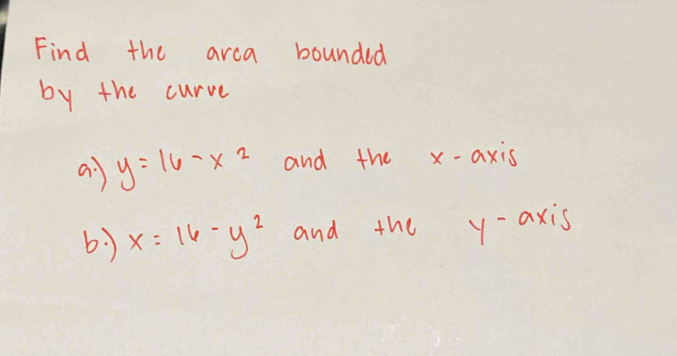 Find the area bounded
by the curve
a.) y = 16 - x² and the x-axis
b.) x = 16 - y² and the y-axis